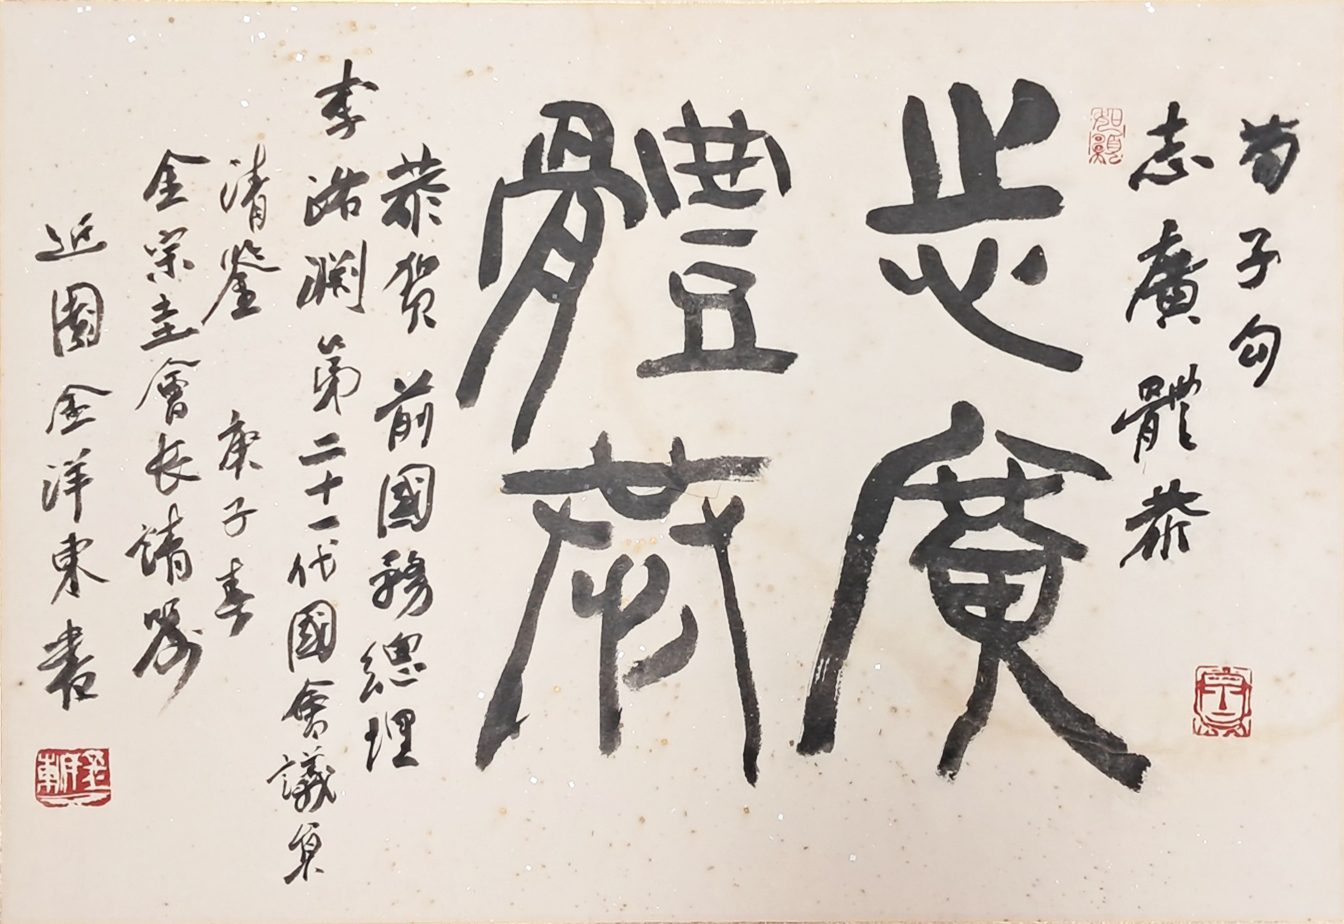 荀子句
志廣體恭
志廣
體恭
恭賀 前國務總理
李洛淵 第二十一代國會議員
清鑒 庚子春
金宗圭會長請囑
近園金洋東書